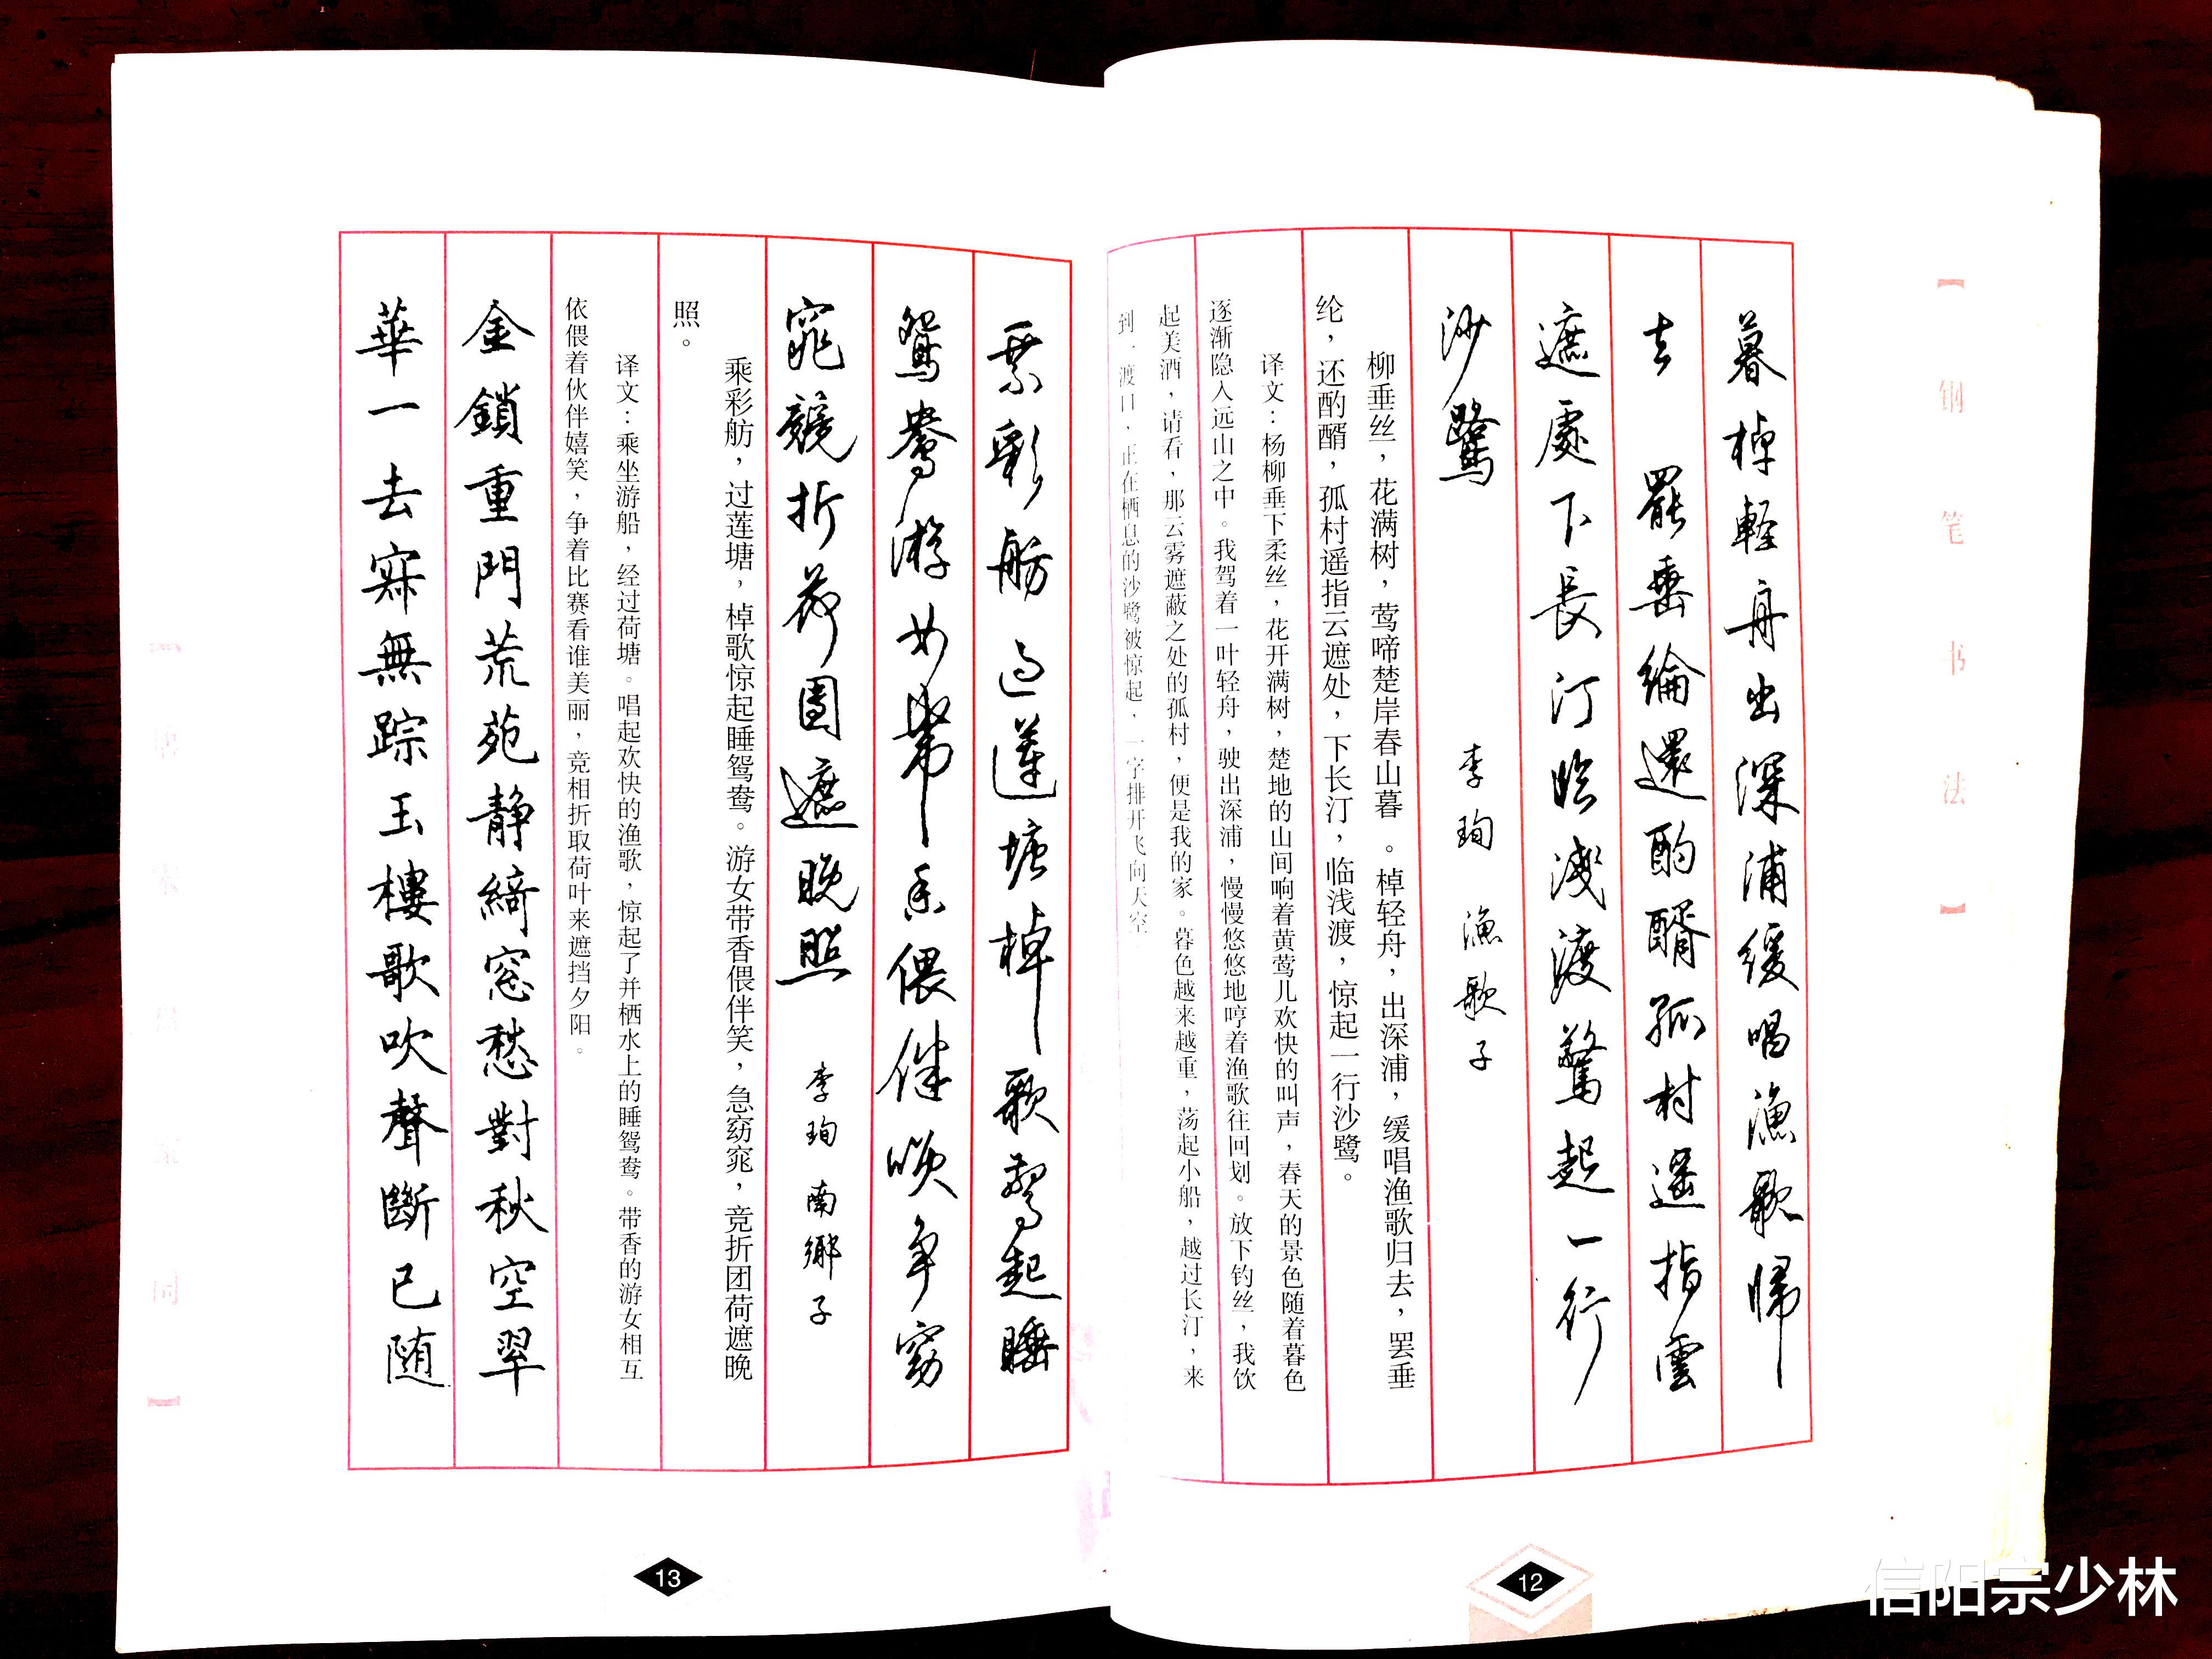 【钢笔书法】
暮棹輕舟出深浦緩唱漁歌歸
去 罷垂綸還酌醑孤村遥指雲
遮處下長汀臨淺渡驚起一行
沙鷺 李珣 漁歌子
柳垂丝，花满树，莺啼楚岸春山暮。棹轻舟，出深浦，缓唱渔歌归去，罢垂
纶，还酌醑，孤村遥指云遮处，下长汀，临浅渡，惊起一行沙鹭。
译文：杨柳垂下柔丝，花开满树，楚地的山间响着黄莺儿欢快的叫声，春天的景色随着暮色
逐渐隐入远山之中。我驾着一叶轻舟，驶出深浦，慢慢悠悠地哼着渔歌往回划。放下钓丝，我饮
起美酒，请看，那云雾遮蔽之处的孤村，便是我的家。暮色越来越重，荡起小船，越过长汀，来
到一渡口，正在栖息的沙鹭被惊起，一字排开飞向天空
12
乘彩舫 過蓮塘棹歌驚起睡
鴛鴦游女帶香偎伴笑争窈
窕競折荷團遮晚照 李珣 南鄉子
乘彩舫，过莲塘，棹歌惊起睡鸳鸯。游女带香偎伴笑，急窈窕，竞折团荷遮晚
照。
译文：乘坐游船，经过荷塘。唱起欢快的渔歌，惊起了并栖水上的睡鸳鸯。带香的游女相互
依偎着伙伴嬉笑，争着比赛看谁美丽，竞相折取荷叶来遮挡夕阳。
金鎖重門荒苑静綺窓愁對秋空翠
華一去寂無踪玉樓歌吹聲斷已随
13
信阳宗少林